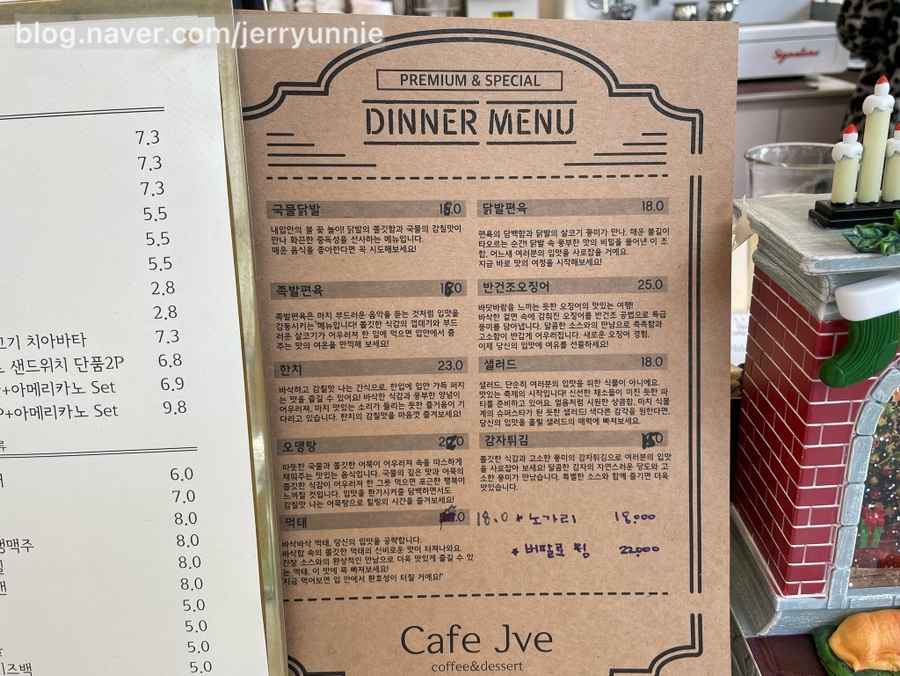 blog.naver.com/jerryunnie
Signature
7.3
7.3
7.3
5.5
5.5
5.5
2.8
2.8
고기 치아바타 7.3
샌드위치 단품2P 6.8
+아메리카노 Set 6.9
+아메리카노 Set 9.8
류
6.0
7.0
8.0
생맥주 8.0
8.0
8.0
5.0
5.0
5.0
5.0
PREMIUM & SPECIAL
DINNER MENU
국물닭발
내입안의 불 꽃 놀이! 닭발의 쫄깃함과 국물의 감칠맛이
만나 화끈한 중독성을 선사하는 메뉴입니다.
매운 음식을 좋아한다면 꼭 시도해보세요!
닭발편육 18.0
편육의 담백함과 닭발의 살코기 풍미가 만나, 매운 불길이
타오르는 순간! 닭발 속 풍부한 맛의 비밀을 풀어낸 이 조
합, 어느새 여러분의 입맛을 사로잡을 거예요.
지금 바로 맛의 여정을 시작해보세요!
족발편육
족발편육은 마치 부드러운 음악을 듣는 것처럼 입맛을
감동시키는 메뉴입니다! 쫄깃한 식감의 껍데기와 부드
러운 살코기가 어우러져 한 입에 먹으면 입안에서 춤
추는 맛의 여운을 만끽해 보세요!
반건조오징어 25.0
바닷바람을 느끼는 듯한 오징어의 맛있는 여행!
바삭한 겉면 속에 감춰진 오징어를 반건조 공법으로 특급
풍미를 담아냅니다. 달콤한 소스와의 만남으로 촉촉함과
고소함이 반갑게 어우러집니다. 새로운 오징어 경험,
이제 당신의 입맛에 여유를 선물하세요!
한치 23.0
바삭하고 감칠맛 나는 간식으로, 한입에 입안 가득 퍼지
는 맛을 즐길 수 있어요! 바삭한 식감과 풍부한 양념이
어우러져, 마치 맛있는 소리가 들리는 듯한 즐거움이 기
다리고 있습니다. 한치의 감칠맛을 마음껏 즐겨보세요!
샐러드 18.0
샐러드, 단순히 여러분의 입맛을 위한 식물이 아니에요.
맛있는 축제의 시작입니다! 신선한 채소들이 미진 듯한 파
티를 준비하고 있어요. 얼음처럼 시원한 상큼함, 마치 식물
계의 슈퍼스타가 된 듯한 샐러드! 색다른 감각을 원한다면,
당신의 입맛을 홀릴 샐러드의 매력에 빠져보세요.
오뎅탕
따뜻한 국물과 쫄깃한 어묵이 어우러져 속을 따스하게
채워주는 맛있는 음식입니다. 국물의 깊은 맛과 어묵의
쫄깃한 식감이 어우러져 한 그릇 먹으면 포근한 행복이
느껴질 것입니다. 입맛을 환기시켜줄 담백하면서도
감칠맛 나는 어묵탕으로 힐링의 시간을 즐겨보세요!
감자튀김
쫄깃한 식감과 고소한 풍미의 감자튀김으로 여러분의 입맛
을 사로잡아 보세요! 달콤한 감자의 자연스러운 당도와 고
소한 풍미가 만났습니다. 특별한 소스와 함께 즐기면 더욱
맛있습니다.
먹태 18.0
* 노가리 18,000
* 버팔로 윙 22,000
바삭바삭 먹태, 당신의 입맛을 공략합니다.
바삭함 속의 쫄깃한 먹태의 신비로운 맛이 터져나와요.
간장 소스와의 환상적인 만남으로 더욱 맛있게 즐길 수 있
는 먹태, 이 맛에 푹 빠져보세요!
지금 먹어보면 입 안에서 환호성이 터질 거예요!"
Cafe Jve
coffee&dessert